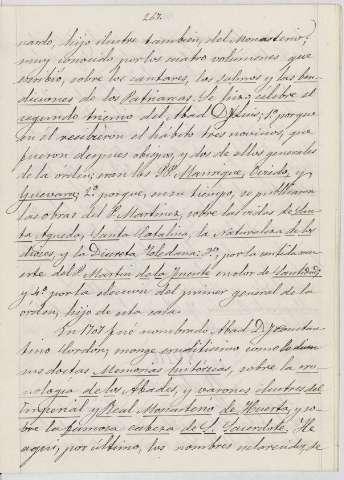 267.
nardo, hijo ilustre tambien, del Monasterio;
muy conocido por los cuatro volúmenes que
escribió, sobre los cantares, los salmos y las ben-
diciones de los Patriarcas. Se hizo célebre el
segundo trienio del Abad D. Luis; 1º porque
en él recibieron el hábito tres novicios, que
fueron despues obispos, y dos de ellos generales
de la órden; eran los PP. Manrique, Oviedo, y
Guevara; 2º porque, en su tiempo, se publicaron
las obras del P. Martinez, sobre las vidas de San-
ta Agueda, Santa Catalina, la Naturaleza de los
dioses, y la Discreta Toledana; 3º, por la santa mu-
erte del P. Martin de la Puente en olor de Santidad;
y 4º por la eleccion del primer general de la
orden, hijo de esta casa.
En 1707 fué nombrado Abad D. Constan-
tino Cordon; monge eruditisimo como lo dicen
sus doctas Memorias históricas, sobre la cro-
nologia de los Abades, y varones ilustres del
Imperial y Real Monasterio de Huerta, y so-
bre la famosa cabeza de S. Sacerdote. He
aqui, por último, los nombres esclarecidos, de